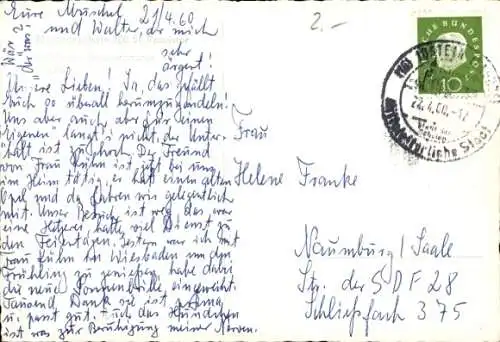 Eure Muschel 21/4.60
und Walter, der mich
sehr
ärgert!
2.-
Unsere Lieben! Ja, das gefällt
Euch so überall herumzugondeln!
Uns aber auch, aber für einen
"Eigenen" langt's nicht, der Unter-
halt ist zu hoch. Der Freund
von Frau Kühn ist jetzt bei uns
im Heim tätig, er hat einen alten
Opel und da fahren wir gelegentlich
mit. Unser Besuch ist weg, das war
eine Hetzerei, hatte viel Dienst zu
den Feiertagen. Gestern war ich mit
Frau Kühn in Wiesbaden um den
Frühling zu genießen, habe dabei
die neue Sonnenbrille eingeweiht.
Tausend Dank, sie ist prima
u. passt gut. Auch das Hündchen
ist was zur Beruhigung meiner Nerven.
Frau
Helene Franke
Naumburg/Saale
Str. der SDF 28
Schließfach 375
DEUTSCHE BUNDESPOST
10
(16) IDSTEIN
22.4.60.-12
Mittelalterliche Stadt